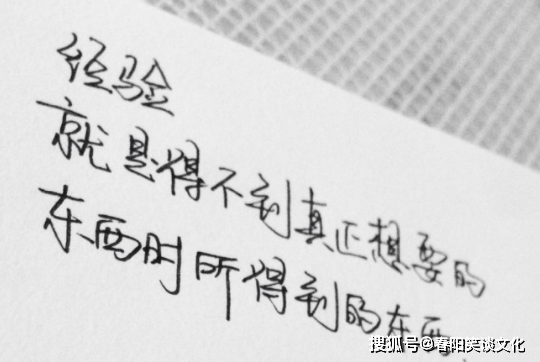 经验
就是得不到真正想要的
东西时所得到的东西
搜狐号@春阳笑谈文化